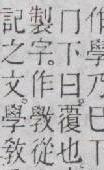 作學乃巳下
冂下曰覆也
製字。作敎從
記之文。學敎